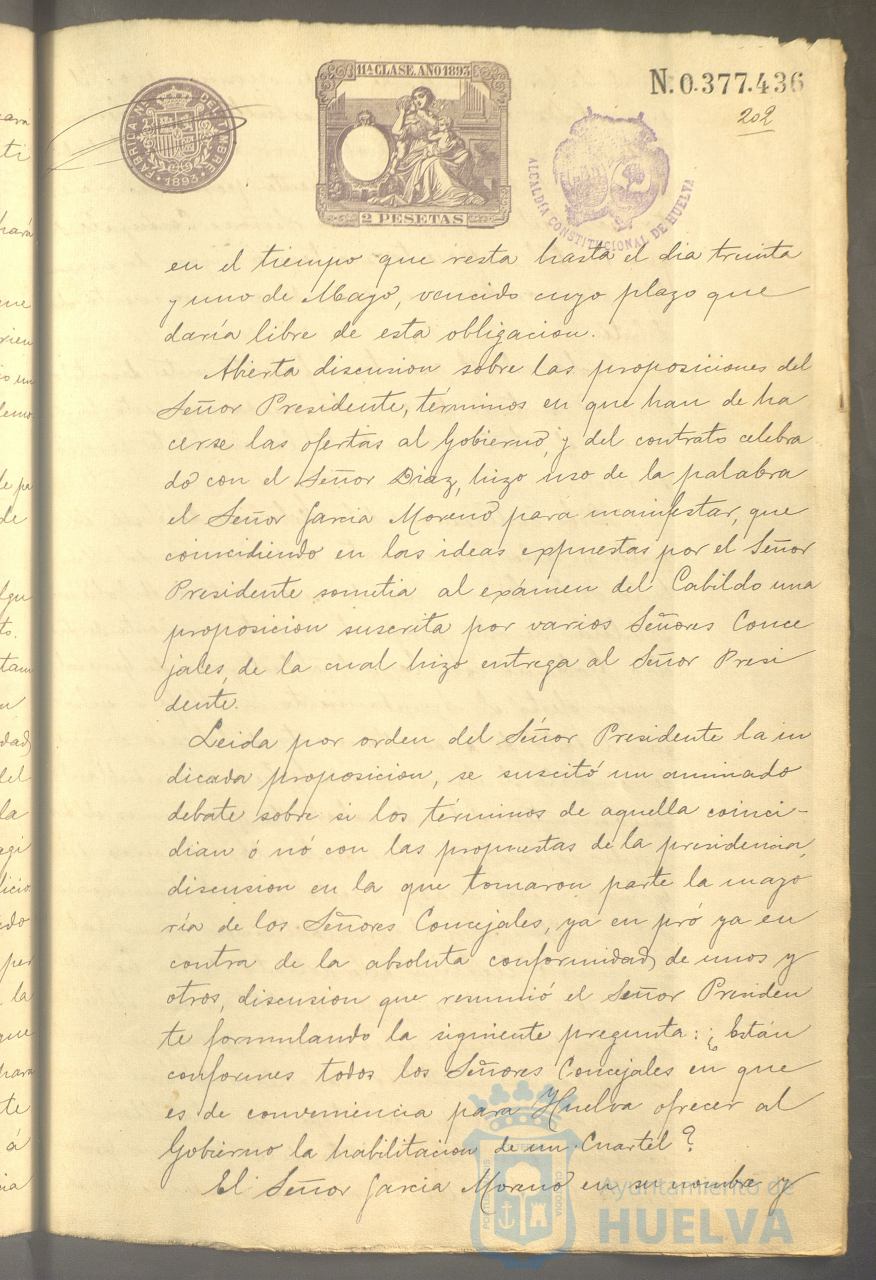 FÁBRICA NAL DEL TIMBRE
1893
11ª CLASE. AÑO 1893
2 PESETAS
N. 0.377.436
202
ALCALDÍA CONSTITUCIONAL DE HUELVA
en el tiempo que resta hasta el dia treinta
y uno de Mayo, vencido cuyo plazo que
daría libre de esta obligacion.
Abierta discusion sobre las proposiciones del
Señor Presidente, términos en que han de ha
cerse las ofertas al Gobierno, y del contrato celebra
do con el Señor Diaz, hizo uso de la palabra
el Señor Garcia Moreno para manifestar, que
coincidiendo en las ideas expuestas por el Señor
Presidente sometia al exámen del Cabildo una
proposicion suscrita por varios Señores Conce
jales, de la cual hizo entrega al Señor Presi
dente.
Leida por orden del Señor Presidente la in
dicada proposicion, se suscitó un animado
debate sobre si los términos de aquella coinci-
dian ó nó con las propuestas de la presidencia,
discusion en la que tomaron parte la mayo
ría de los Señores Concejales, ya en pró ya en
contra de la absoluta conformidad de unos y
otros, discusion que resumió el Señor Presiden
te formulando la siguiente pregunta: ¿Están
conformes todos los Señores Concejales en que
es de conveniencia para Huelva ofrecer al
Gobierno la habilitacion de un Cuartel?
El Señor Garcia Moreno en su nombre y
Ayuntamiento de
HUELVA